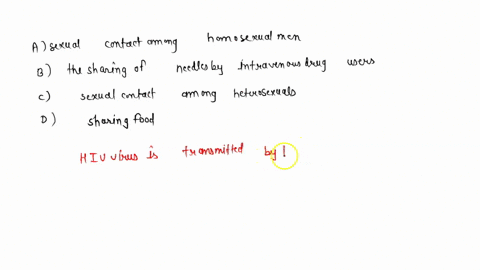 A) sexual contact among homosexual men
B) the sharing of needles by intravenous drug users
C) sexual contact among heterosexuals
D) sharing food
HIV virus is transmitted by